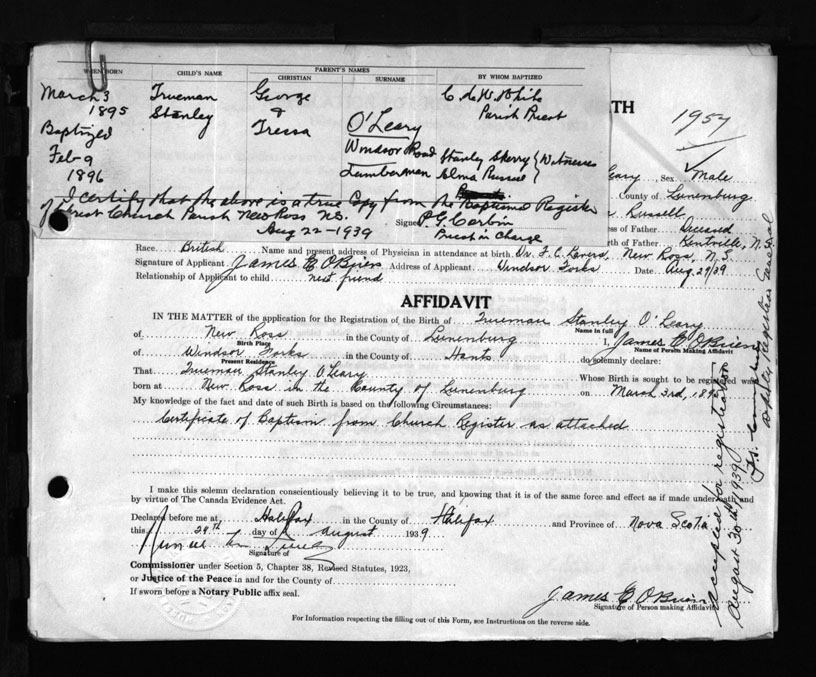 WHEN BORN CHILD'S NAME PARENT'S NAMES BY WHOM BAPTIZED
CHRISTIAN SURNAME
March 3 Trueman George C. de W. White
1895 Stanley & Parish Priest
Baptized Tressa O'Leary
Feb-9 Windsor Road Stanley Skerry } Witnesses
1896 Lumberman Elma Russel
I certify that the above is a true Copy from the Baptismal Register
of Christ Church Parish New Ross N.S.
Signed P. G. Corbin
Aug 22-1939 Priest in Charge
TH
1957
eary, Sex Male
County of Lunenburg
Russell
ss of Father Deceased
rth of Father Kentville, N.S.
Race. British Name and present address of Physician in attendance at birth. Dr. F. C. New Ross, N.S.
Signature of Applicant James E O'Brien Address of Applicant Windsor Forks Date Aug 29/39
Relationship of Applicant to child next friend
AFFIDAVIT
IN THE MATTER of the application for the Registration of the Birth of Trueman Stanley O'Leary
Name in full
of New Ross in the County of Lunenburg I, James E O'Brien
Birth Place Name of Person Making Affidavit
of Windsor Forks in the County of Hants do solemnly declare:
Present Residence
That Trueman Stanley O'Leary Whose Birth is sought to be registered was
born at New Ross in the County of Lunenburg on March 3rd, 1895
My knowledge of the fact and date of such Birth is based on the following Circumstances:
Certificate of Baptism from Church Register as attached
I make this solemn declaration conscientiously believing it to be true, and knowing that it is of the same force and effect as if made under oath and
by virtue of The Canada Evidence Act.
Declared before me at Halifax in the County of Halifax and Province of Nova Scotia
this 29th day of August 1939
Signature of
Commissioner under Section 5, Chapter 38, Revised Statutes, 1923,
or Justice of the Peace in and for the County of
If sworn before a Notary Public affix seal.
James E O'Brien
Signature of Person making Affidavit
For Information respecting the filling out of this Form, see Instructions on the reverse side.
Accepted for registration
August 30th 1939
Deputy Registrar General